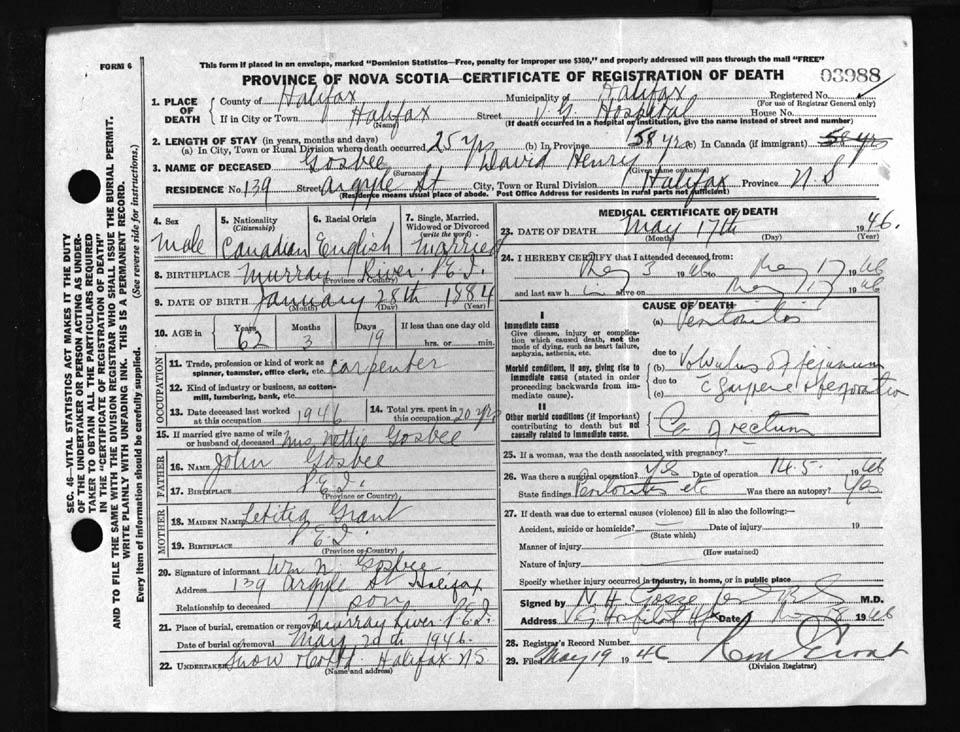 FORM 6
This form if placed in an envelope, marked "Dominion Statistics—Free, penalty for improper use $300," and properly addressed will pass through the mail "FREE"
PROVINCE OF NOVA SCOTIA—CERTIFICATE OF REGISTRATION OF DEATH
03988
1. PLACE OF DEATH
County of Halifax Municipality of Halifax Registered No.
(For use of Registrar General only)
If in City or Town Halifax Street V G Hospital House No.
(Name) (If death occurred in a hospital or institution, give the name instead of street and number)
2. LENGTH OF STAY (in years, months and days)
(a) In City, Town or Rural Division where death occurred 25 yrs (b) In Province 58 yrs (c) In Canada (if immigrant) 58 yrs
3. NAME OF DECEASED Gosbee David Henry
(Surname) (Given name or names)
RESIDENCE No. 139 Street Argyle St City, Town or Rural Division Halifax Province N.S
(Residence means usual place of abode. Post Office Address for residents in rural parts not sufficient)
4. Sex Male
5. Nationality (Citizenship) Canadian
6. Racial Origin English
7. Single, Married, Widowed or Divorced (write the word) Married
8. BIRTHPLACE Murray River P.E.I.
(Province or Country)
9. DATE OF BIRTH January 28th 1884
(Month) (Day) (Year)
10. AGE in Years 62 Months 3 Days 19 If less than one day old
hrs. or min.
OCCUPATION
11. Trade, profession or kind of work as spinner, teamster, office clerk, etc. Carpenter
12. Kind of industry or business, as cotton-mill, lumbering, bank, etc.
13. Date deceased last worked at this occupation 1946
14. Total yrs. spent in this occupation 20 yrs
15. If married give name of wife or husband of deceased Mrs. Nettie Gosbee
FATHER
16. NAME John Gosbee
17. BIRTHPLACE P.E.I.
(Province or Country)
MOTHER
18. MAIDEN NAME Letitia Grant
19. BIRTHPLACE P.E.I.
(Province or Country)
20. Signature of informant Wm N Gosbee
Address 139 Argyle St Halifax
Relationship to deceased son
21. Place of burial, cremation or removal Murray River P.E.I.
Date of burial or removal May 20th 1946.
22. UNDERTAKER Snow & Co Ltd. Halifax N.S.
(Name and address)
MEDICAL CERTIFICATE OF DEATH
23. DATE OF DEATH May 17th 1946.
(Month) (Day) (Year)
24. I HEREBY CERTIFY that I attended deceased from:
May 3 1946 to May 17 1946
and last saw him alive on May 17 1946
CAUSE OF DEATH
I
Immediate cause
Give disease, injury or complication which caused death, not the mode of dying, such as heart failure, asphyxia, asthenia, etc.
(a) Peritonitis
Morbid conditions, if any, giving rise to immediate cause (stated in order proceeding backwards from immediate cause).
due to
(b) Volvulus of jejunum
due to
(c)
II
Other morbid conditions (if important) contributing to death but not causally related to immediate cause.
Ca of rectum
25. If a woman, was the death associated with pregnancy?
26. Was there a surgical operation? Yes Date of operation 14.5. 1946
State findings Peritonitis etc Was there an autopsy? Yes
27. If death was due to external causes (violence) fill in also the following:—
Accident, suicide or homicide? Date of injury 19
(State which)
Manner of injury
(How sustained)
Nature of injury
Specify whether injury occurred in industry, in home, or in public place
Signed by N H Gosse M.D.
Address V.G. Hospital Hfx Date 18 1946
28. Registrar's Record Number
29. Filed May 19 1946
(Division Registrar)
SEC. 46—VITAL STATISTICS ACT MAKES IT THE DUTY OF THE UNDERTAKER OR PERSON ACTING AS UNDERTAKER TO OBTAIN ALL THE PARTICULARS REQUIRED IN THE "CERTIFICATE OF REGISTRATION OF DEATH" AND TO FILE THE SAME WITH THE DIVISION REGISTRAR WHO SHALL ISSUE THE BURIAL PERMIT.
WRITE PLAINLY WITH UNFADING INK. THIS IS A PERMANENT RECORD.
Every item of information should be carefully supplied. (See reverse side for instructions.)